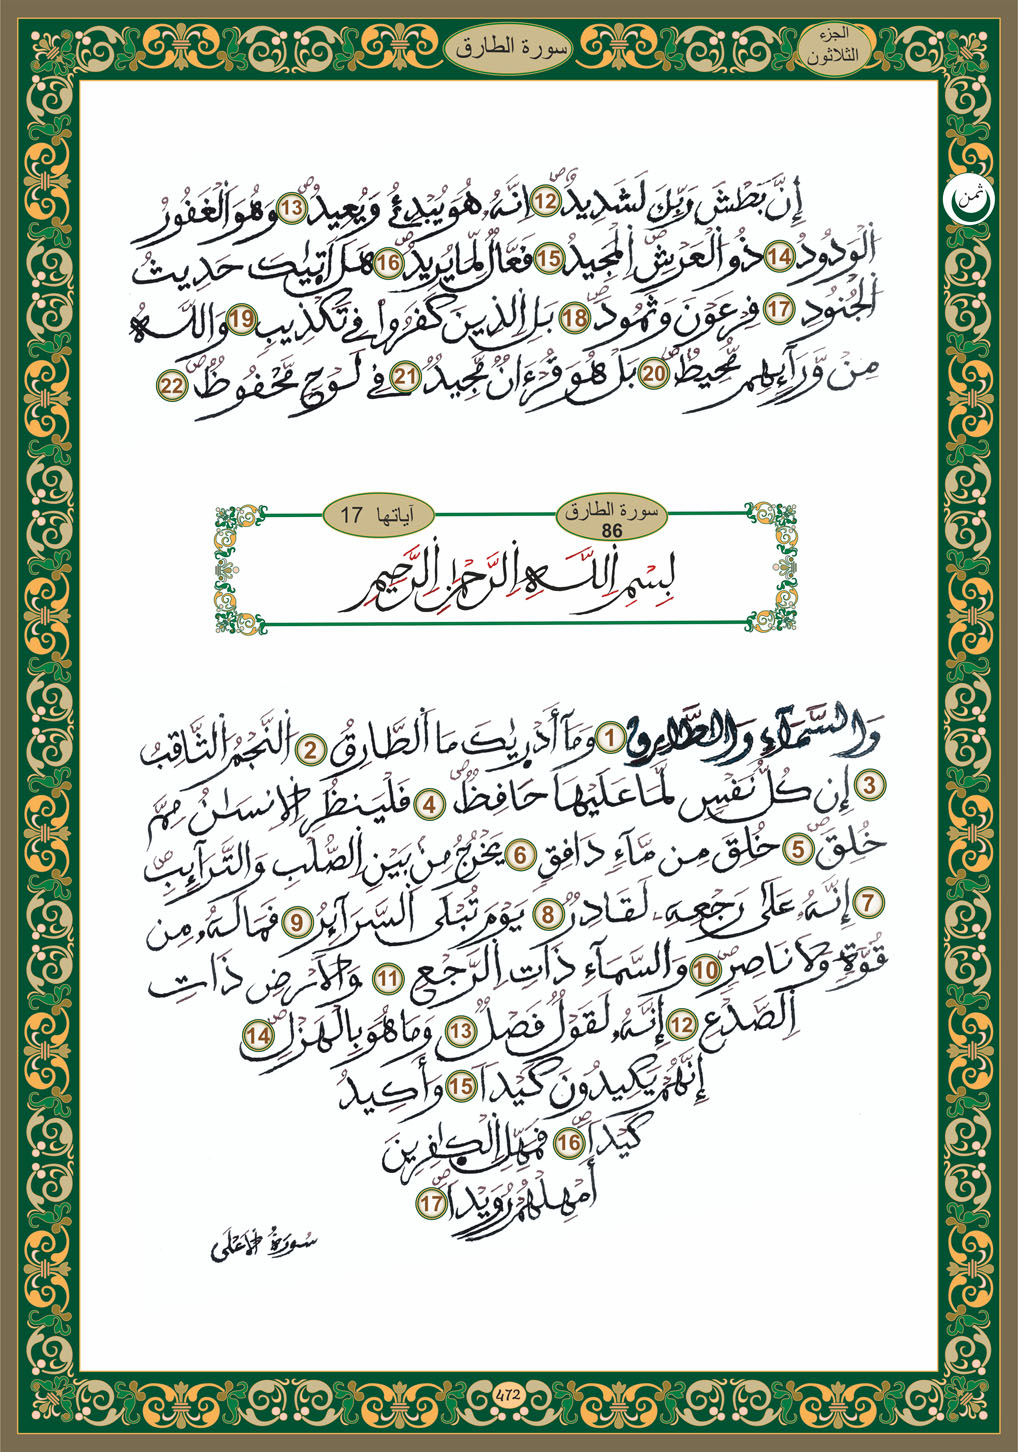 سورة الطارق
الجزء
الثلاثون
ثمن
إِنَّ بَطْشَ رَبِّكَ لَشَدِيدٌ 12 اِنَّهُۥ هُوَ يُبْدِئُ وَيُعِيدُ 13 وَهُوَ اَلْغَفُورُ
اُلْوَدُودُ 14 ذُو اُلْعَرْشِ اِلْمَجِيدُ 15 فَعَّالٌ لِّمَا يُرِيدُ 16 هَلَ اَتٰيكَ حَدِيثُ
اُلْجُنُودِ 17 فِرْعَوْنَ وَثَمُودَ 18 بَلِ اِلذِينَ كَفَرُواْ فِے تَكْذِيبٍ 19 وَاللَّهُ
مِنْ وَّرَآئِهِم مُّحِيطٌ 20 بَلْ هُوَ قُرْءَانٌ مَّجِيدٌ 21 فِے لَوْحٍ مَّحْفُوظٍ 22
سورة الطارق
86
آياتها 17
بِسْمِ اِللَّهِ اِلرَّحْمٰنِ اِلرَّحِيمِ
وَالسَّمَآءِ وَالطَّارِقِ 1 وَمَآ أَدْرٰيكَ مَا اَلطَّارِقُ 2 اُلنَّجْمُ اُلثَّاقِبُ
3 إِن كُلُّ نَفْسٍ لَّمَا عَلَيْهَا حَافِظٌ 4 فَلْيَنظُرِ اِلِانسَٰنُ مِمَّ
خُلِقَ 5 خُلِقَ مِن مَّآءٍ دَافِقٍ 6 يَخْرُجُ مِنۢ بَيْنِ اِلصُّلْبِ وَالتَّرَآئِبِ
7 إِنَّهُۥ عَلَىٰ رَجْعِهِۦ لَقَادِرٌ 8 يَوْمَ تُبْلَى اَلسَّرَآئِرُ 9 فَمَا لَهُۥ مِن
قُوَّةٍ وَلَا نَاصِرٍ 10 وَالسَّمَآءِ ذَاتِ اِلرَّجْعِ 11 وَالَارْضِ ذَاتِ
اِلصَّدْعِ 12 إِنَّهُۥ لَقَوْلٌ فَصْلٌ 13 وَمَا هُوَ بِالْهَزْلِ 14
إِنَّهُمْ يَكِيدُونَ كَيْداً 15 وَأَكِيدُ
كَيْداً 16 فَمَهِّلِ اِلْكٰفِرِينَ
أَمْهِلْهُمْ رُوَيْداً 17
سُورَةُ اُلَاعْلَى
472